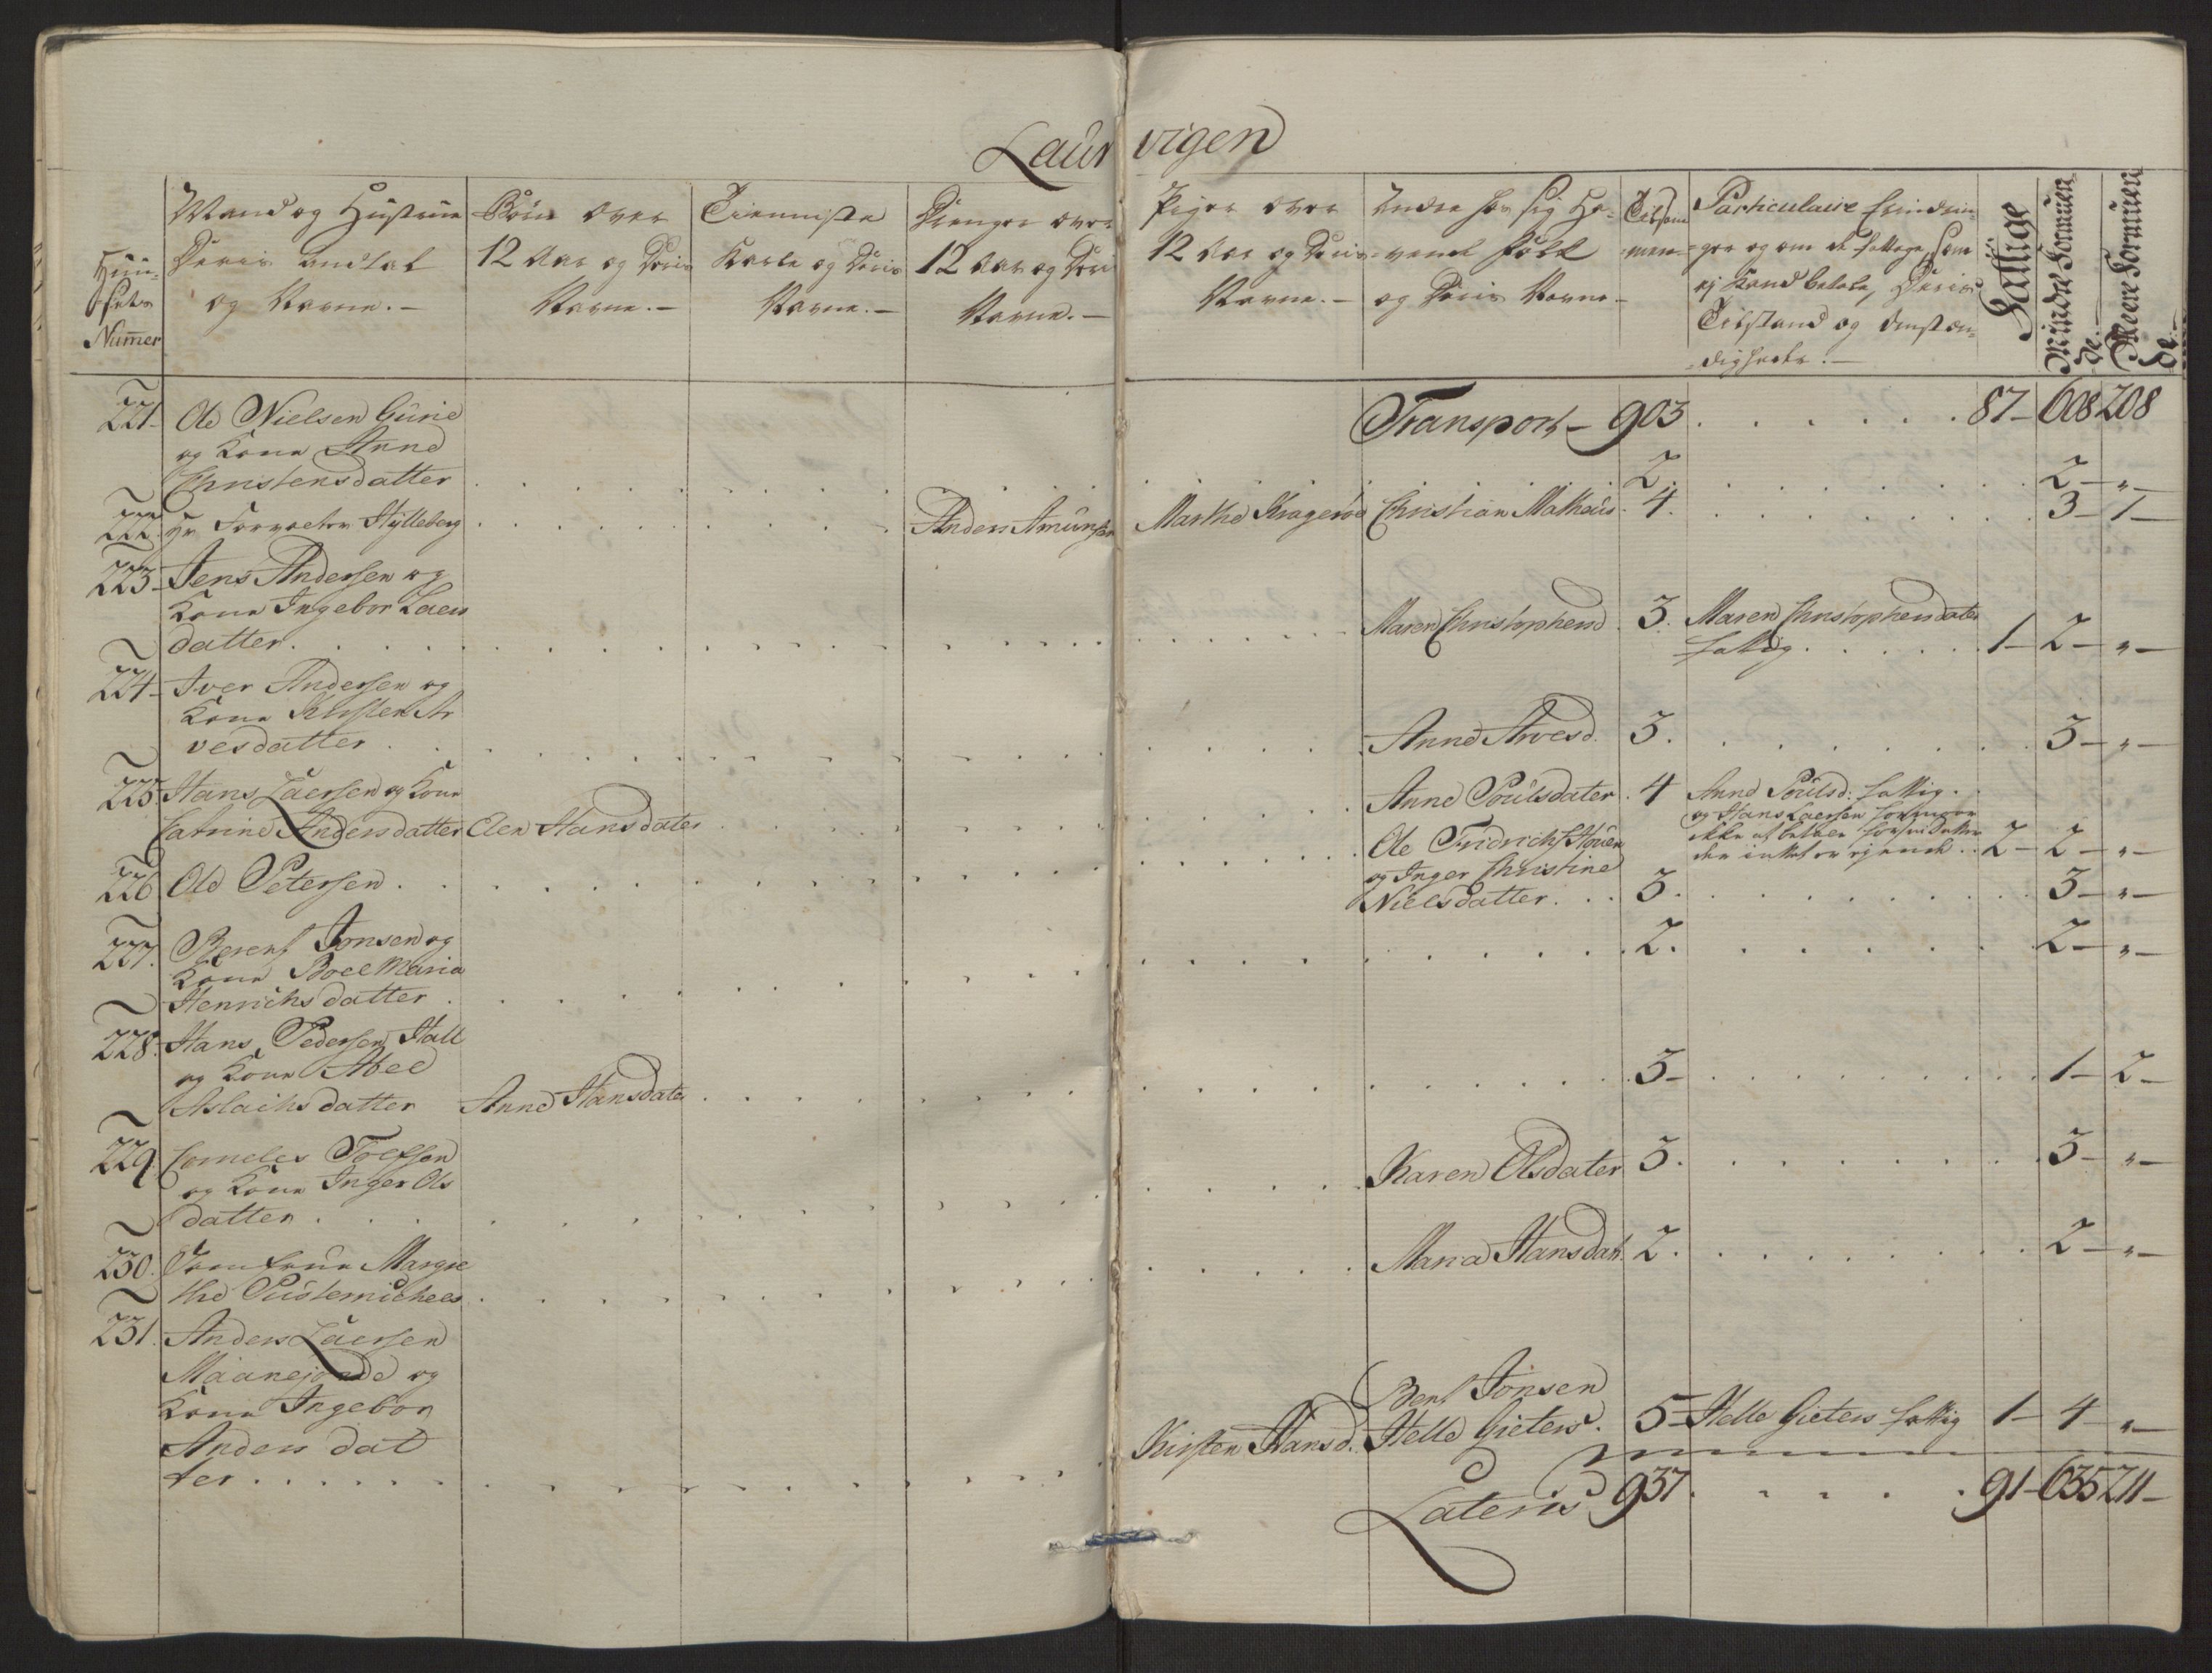 Laur vigen
Huu-
sets
Numer
Mand og Hustrue
Deris andtal
og Navne.-
Børn over
12 Aar og Deris
Navne.-
Tienniste
Karle og Deris
Navne.-
Drenger over
12 Aar og Deris
Navne.-
Piger over
12 Aar og Deris
Navne.-
Andre for sig Le-
vende Folk
og Deris Navne-
Tilsam
men
Particulaire Erindrin-
ger og om de fattige, som
ej kand betale, Deris
Tilstand og Omstæn-
digheder.-
Fattige
Mindre Formuen
de.-
Meere Formuen
de.-
Transport- 903 87- 608 208
221- Ole Nielsen Gurie
og Kone Anne
Christensdatter 2. 2- "-
222. Hr Forvalter Hylleberg Anders Amunsen Marthe Kragerøe Christian Matheus 4. 3- 1-
223- Jens Andersen og
Kone Ingebor Laers
datter Maren Christophersd. 3. Maren Christophersdater
fattig 1- 2- "-
224- Iver Andersen og
Kone Kirsten Ar
vesdatter Anne Arvesd. 3. 3- "-
225. Hans Laersen og Kone
Catrine Andersdatter Elen Hansdater Anne Poulsdater 4 Anne Poulsd: fattig
og Hans Laersen formaar
ikke at betale for sin Datter
der intet er ejende 2- 2- "-
226 Ole Petersen Ole Fridrich
og Inger Christine
Nielsdatter 3. 3- "-
227. Berent Jonsen og
Kone Boel Maria
Henrichsdatter 2. 2- "-
228. Hans Pedersen Hall
og Kone Abel
Aslachsdatter Anne Hansdater 3- 1- 2-
229. Corneles Toefsen
og Kone Inger Ols
datter Karen Olsdater 3. 3- "-
230. Jomfrue Margre
the Pustemichels Maria Hansdat. 2. 2- "-
231. Anders Laersen
Maanejorde og
Kone Ingebor
Anders dat
ter Kirsten Hansd. Bent Jonsen
Helle Gieters. 5- Helle Gieters fattig 1- 4- "-
Lateris 937 91- 635 211-